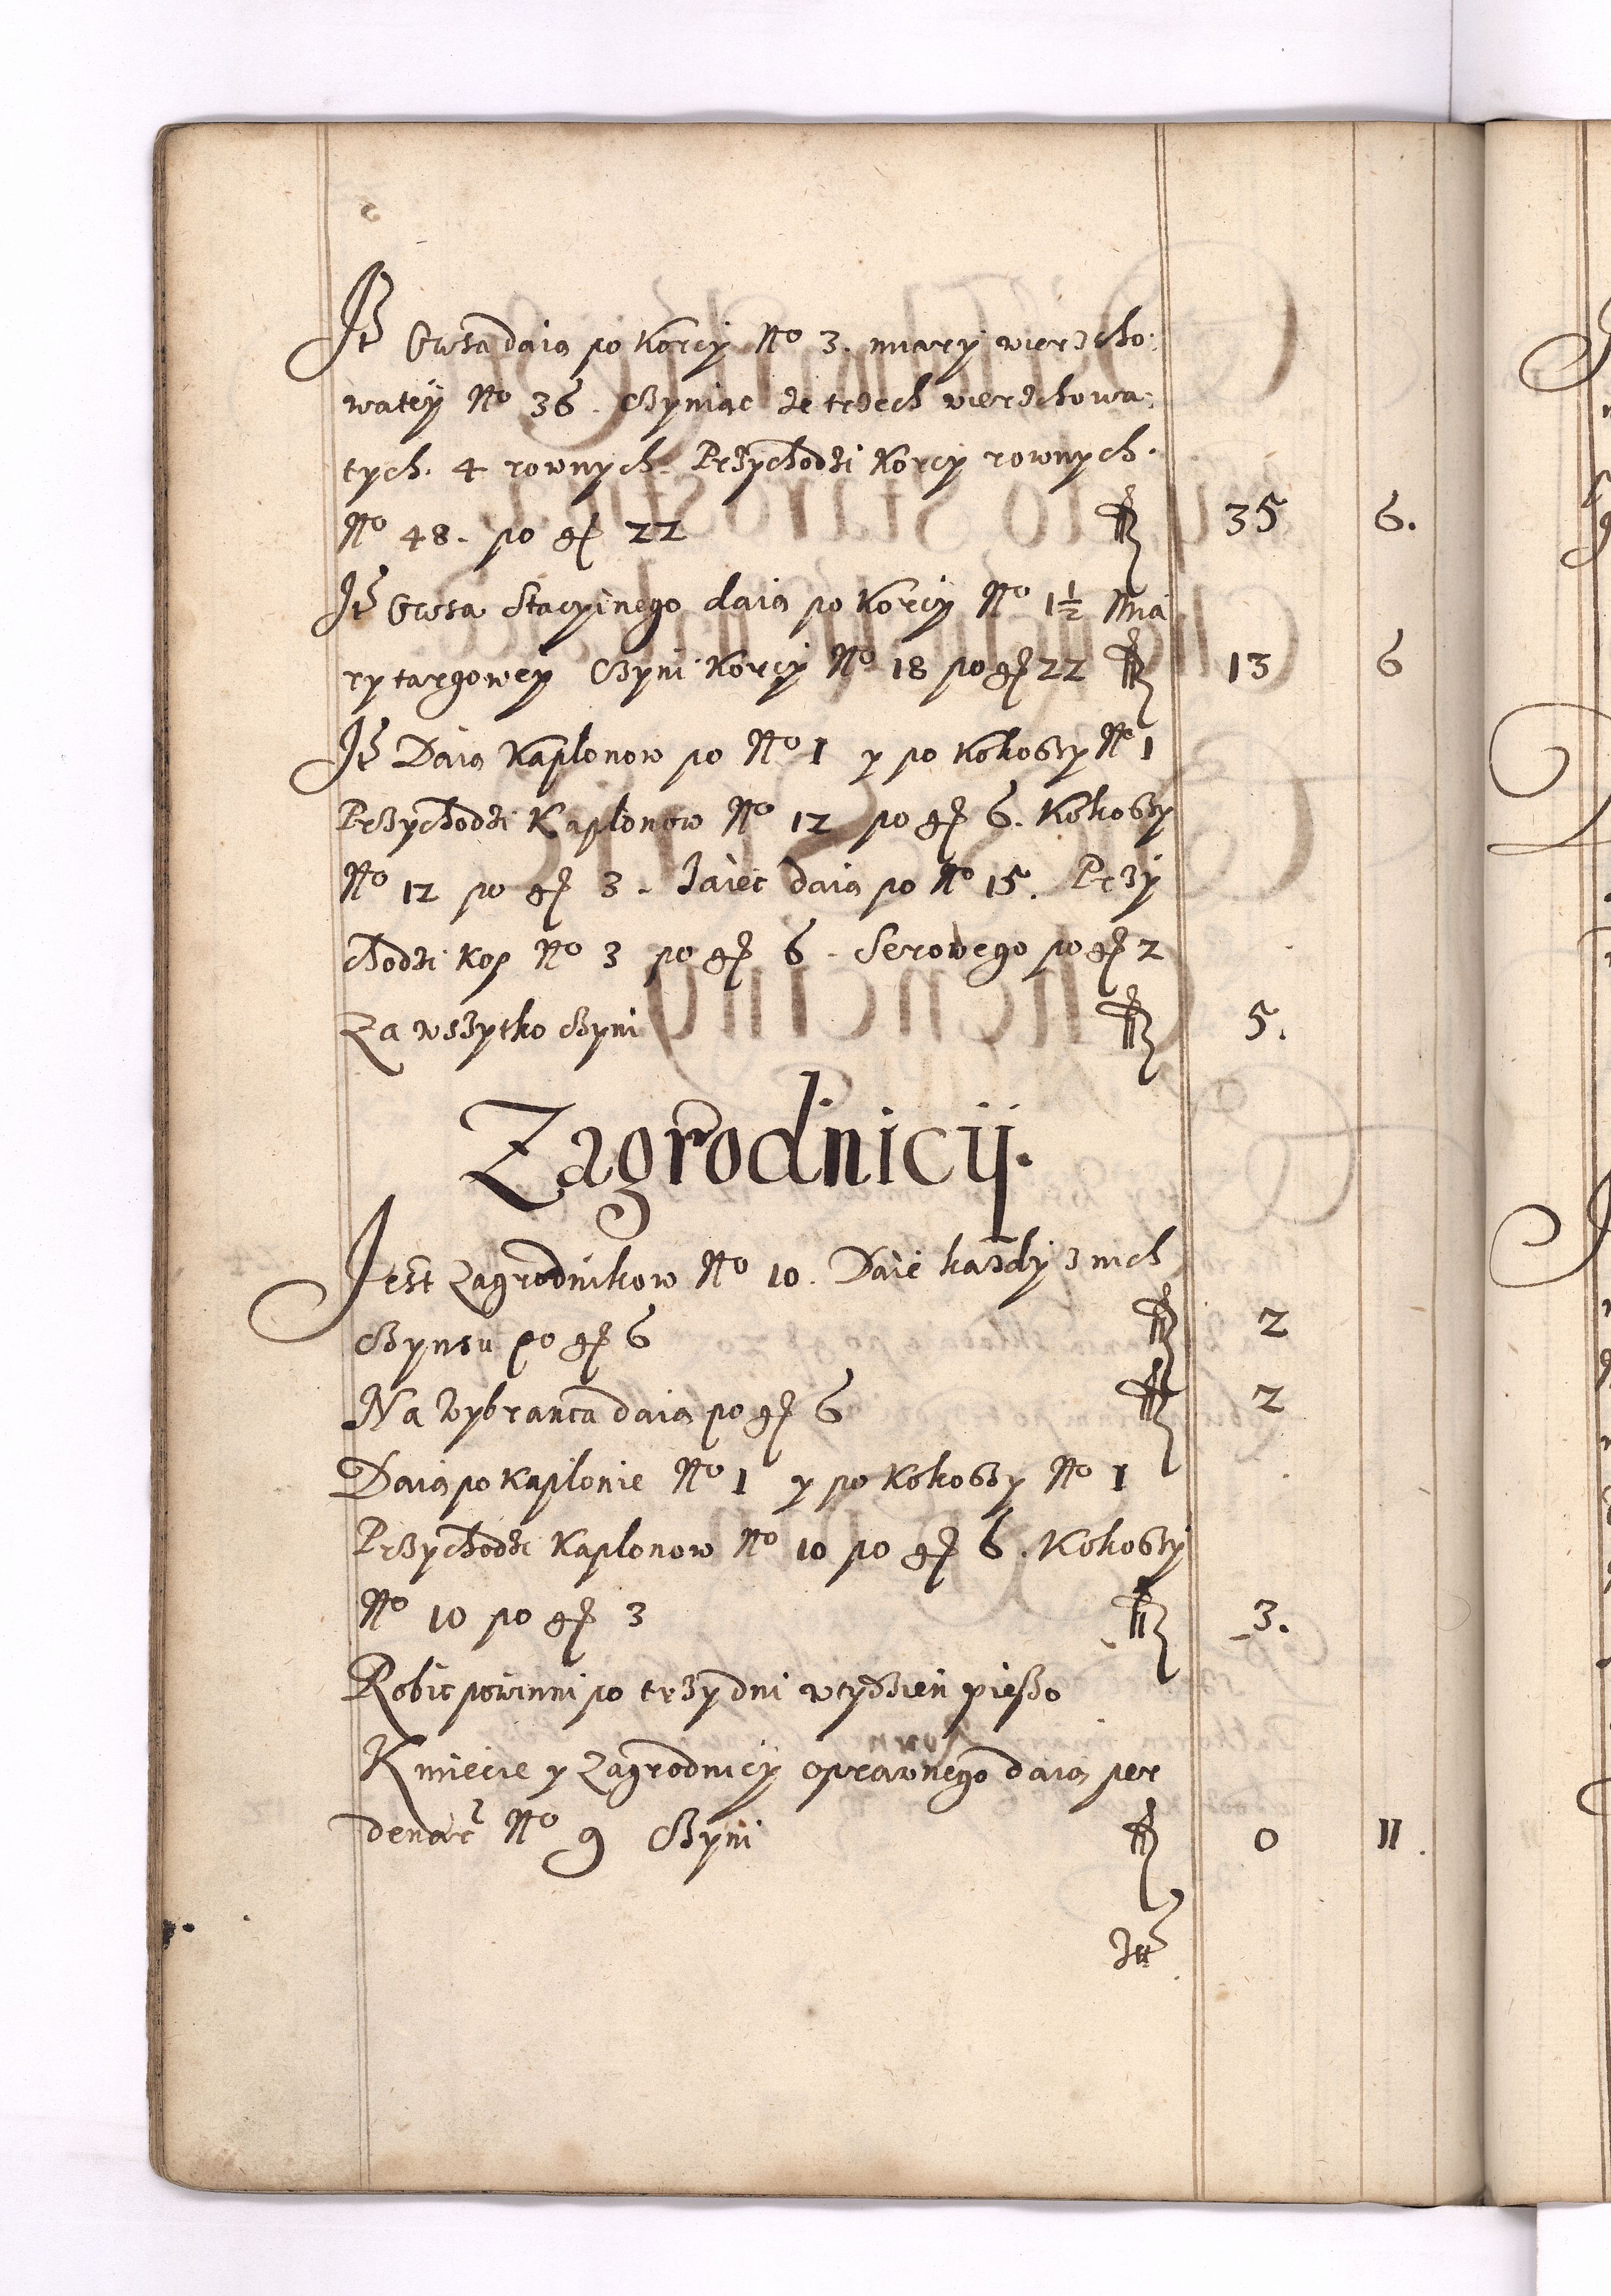 Itē Owsa daią po korcy No 3. miary wierzcho:
watey No 36. Czyniąc ze trzech wierzchowa:
tych. 4 rownych. Przychodzi Korcy rownych.
No 48. po gl 22 fl 35 6.
Itē Owsa Stacyinego daią po korcy No 1½ Mia
ry targowey Czyni Korcy No 18 po gl 22 fl 13 6
Itē Daią Kapłonow po No 1 y po Kokoszy No 1
Przychodzi Kapłonow No 12 po gl 6. Kokoszy
No 12 po gl 3. Jaiec daią po No 15. Przy
chodzi kop No 3 po gl 6. Serowego po gl 2
Za wszytko czyni fl 5.
Zagrodnicij.
Jest Zagrodnikow No 10. Daie każdy z nich
Czynsu po gl 6 fl 2
Na Wybrańca daią po gl 6 fl 2
Daią po Kapłonie No 1 y po Kokoszy No 1
Przychodzi Kapłonow No 10 po gl 6. Kokoszy
No 10 po gl 3 fl 3.
Robic powinni po trzy dni w tydzień pieszo
Kmiecie y Zagrodnicy oprawnego daią per
denar No 9 Czyni fl 0 11.
Itē